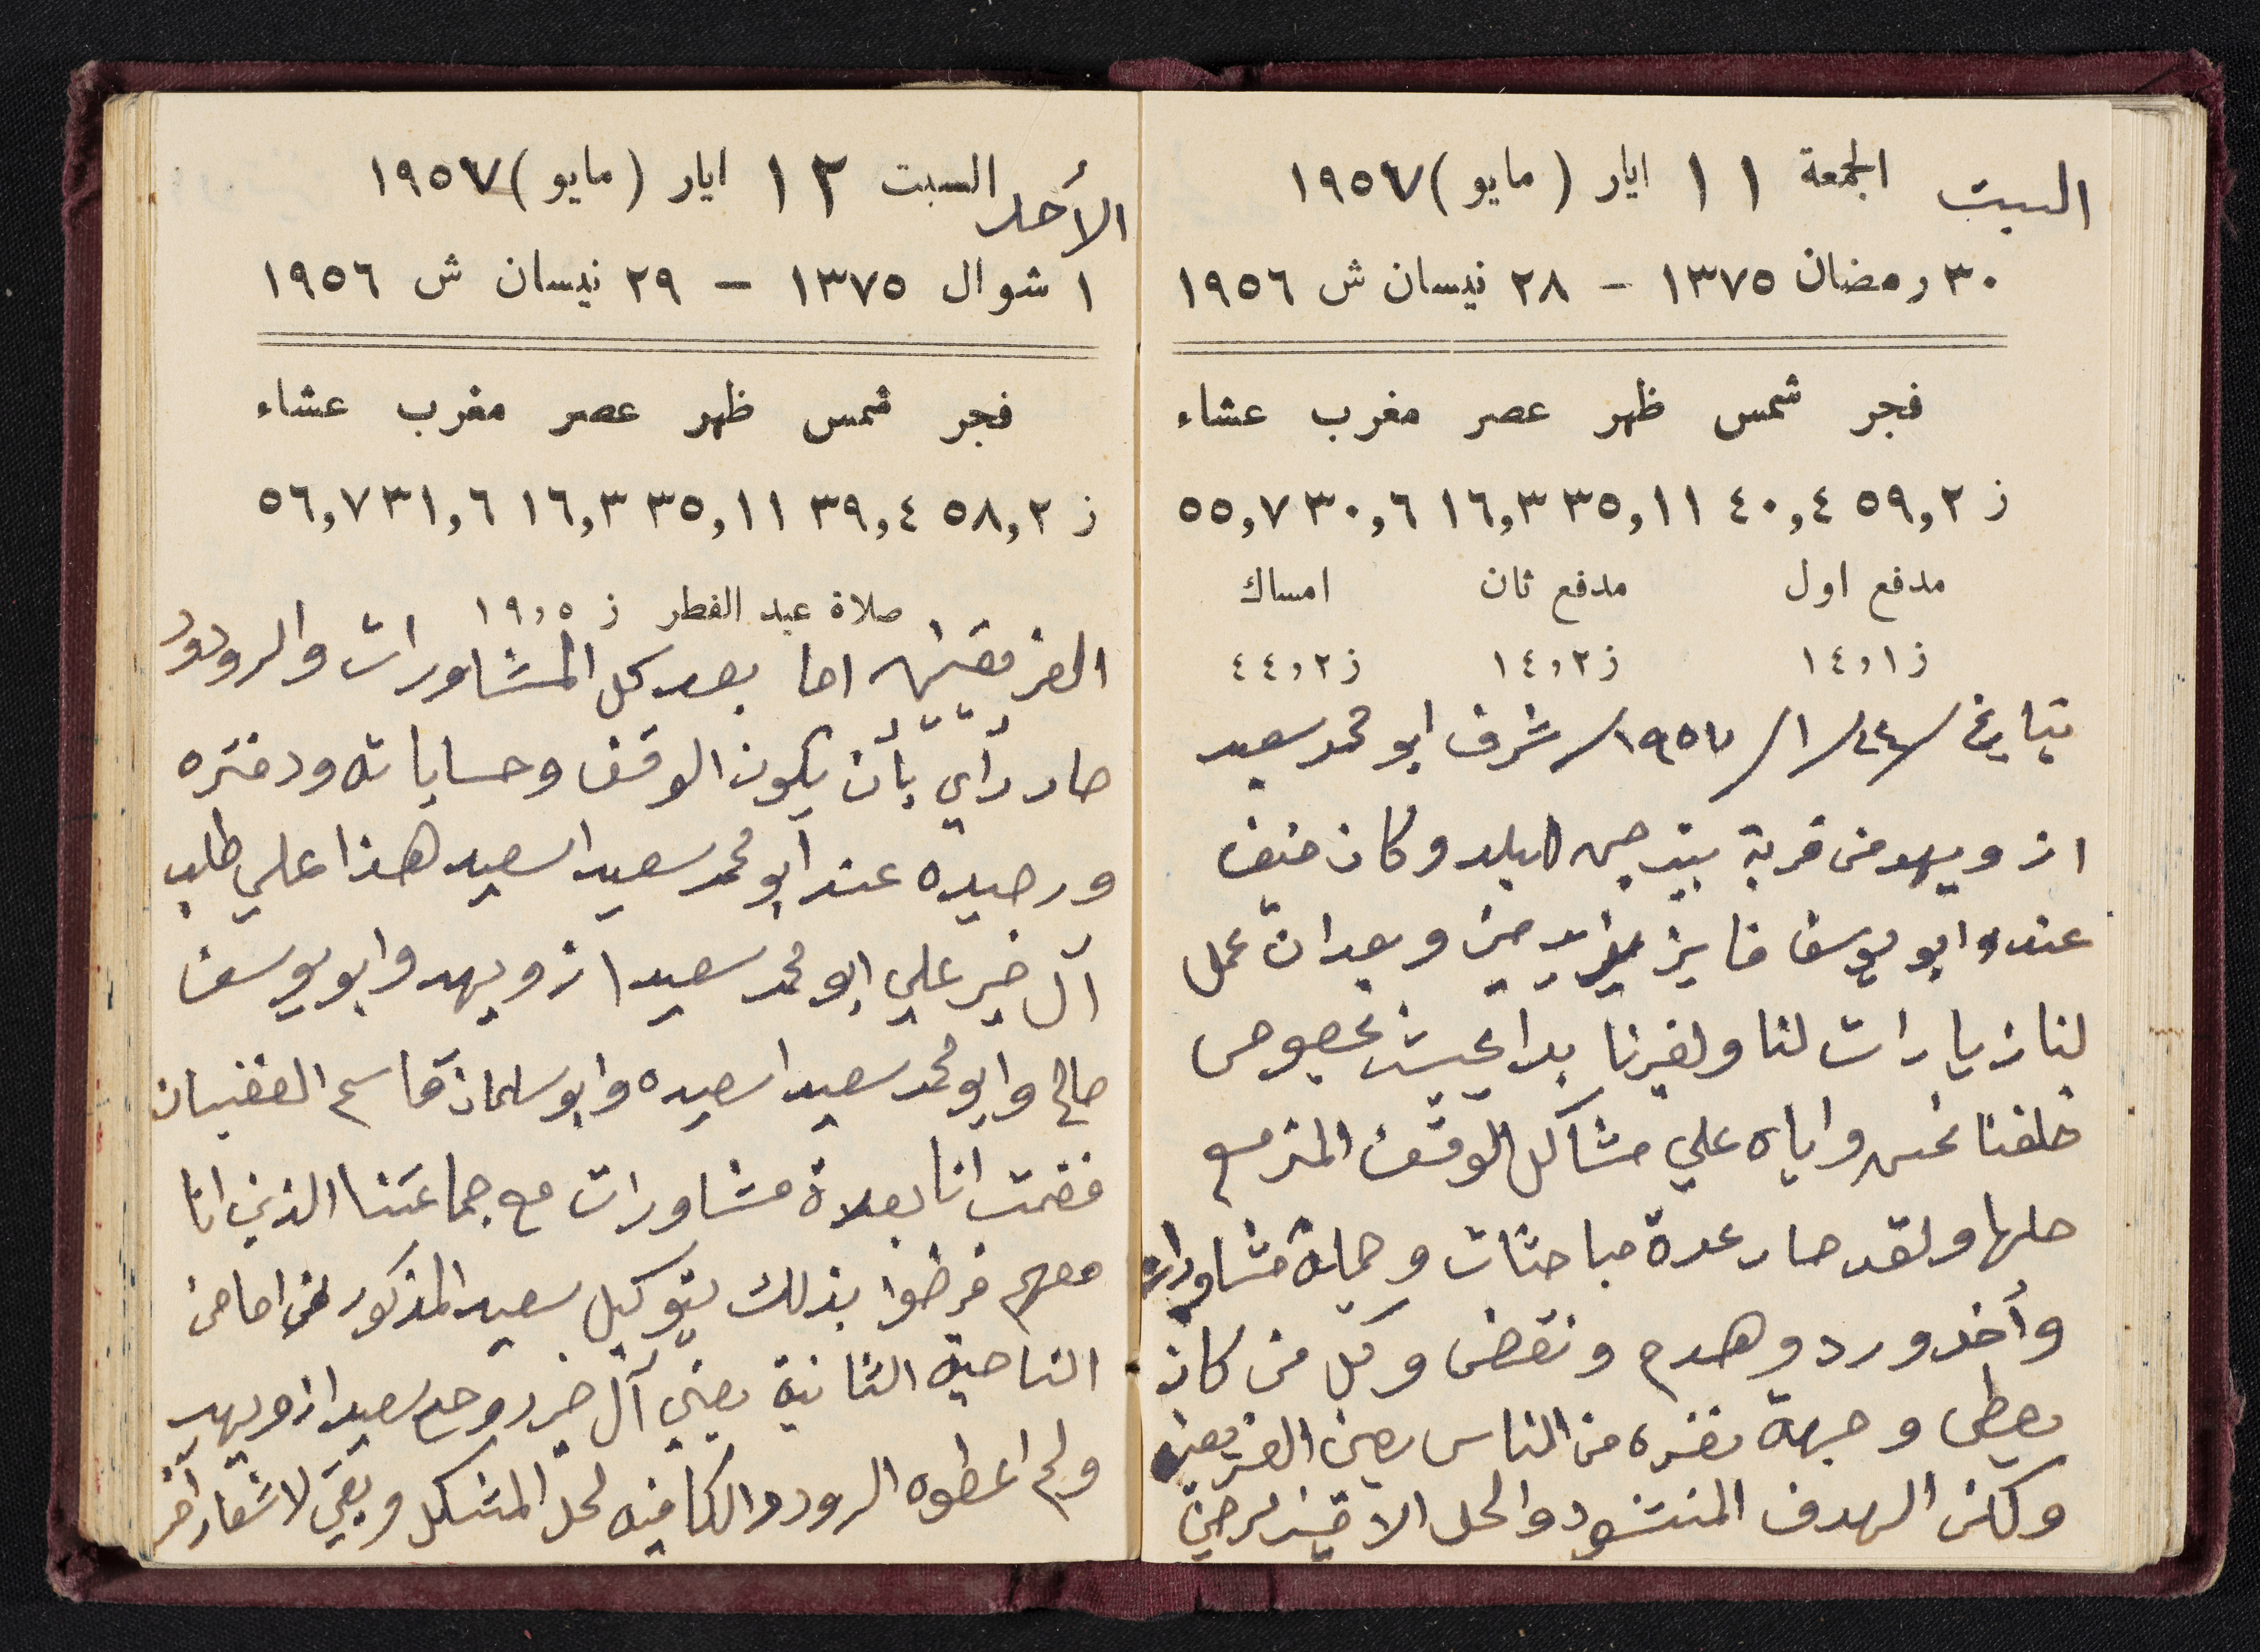 السبت الجمعة ١١ ايار (مايو) ١٩٥٧
٣٠ رمضان ١٣٧٥ - ٢٨ نيسان ش ١٩٥٦
فجر شمس ظهر عصر مغرب عشاء
ز ٥٩,٢ ٤٠,٤ ٣٥,١١ ١٦,٣ ٣٠,٦ ٥٥,٧
مدفع اول مدفع ثان امساك
ز ١٤,١ ز ١٤,٢ ز ٤٤,٢
بتاريخ / ٢٤/ ١/ ١٩٥٧/ شرف ابو محمد سعيد
ازويهد من قرية بيت جن البلد وكان ضيف
عنده ابو يوسف فايز وبعد ان عمل
لنا زيارات لنا ولغيرنا بدا يبحث بخصوص
خلفنا نحن واياه علي مشاكل الوقف المزمع
حلها ولقد صار عدة مباحثات وجملة مشاورات
وأخد ورد وهدم ونقض وكل من كان
يعطي وجهة نضره من الناس يعني الفريقين
ولكن الهدف المنشود والحل
الأحد السبت ١٢ ايار (مايو) ١٩٥٧
١ شوال ١٣٧٥ - ٢٩ نيسان ش ١٩٥٦
فجر شمس ظهر عصر مغرب عشاء
ز ٥٨,٢ ٣٩,٤ ٣٥,١١ ١٦,٣ ٣١,٦ ٥٦,٧
صلاة عيد الفطر ز ١٩,٥
الفريقين اما بعد كل المشاورات والرودود
صار رأي بأن يكون الوقف وحساباته ودفتره
ورصيده عند أبو محمد سعيد اسعيد هذا علي طلب
آل خير علي ابو محمد سعيد ازويهد وابو يوسف
صالح وابو محمد سعيد اسعيده وابو سلمان قاسم الغضبان
فقمت انا بعدة مشاورات مع جماعتنا الذين انا
معهم فرضوا بذلك بتوكيل سعيد المذكور اما من
الناحية الثانية يعني آل خير روح سعيد ازويهد
ولم اعطوه الرودود الكافيه لحل المشكل وبقي لاشعار آخر